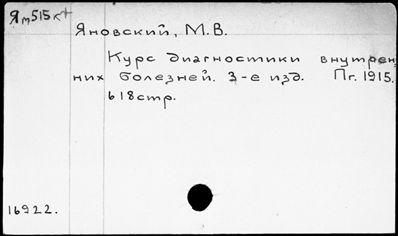 Ям515к+
Яновский, М.В.
Курс диагностики внутрен-
них болезней. 3-е изд. Пг. 1915.
618стр.
16922.